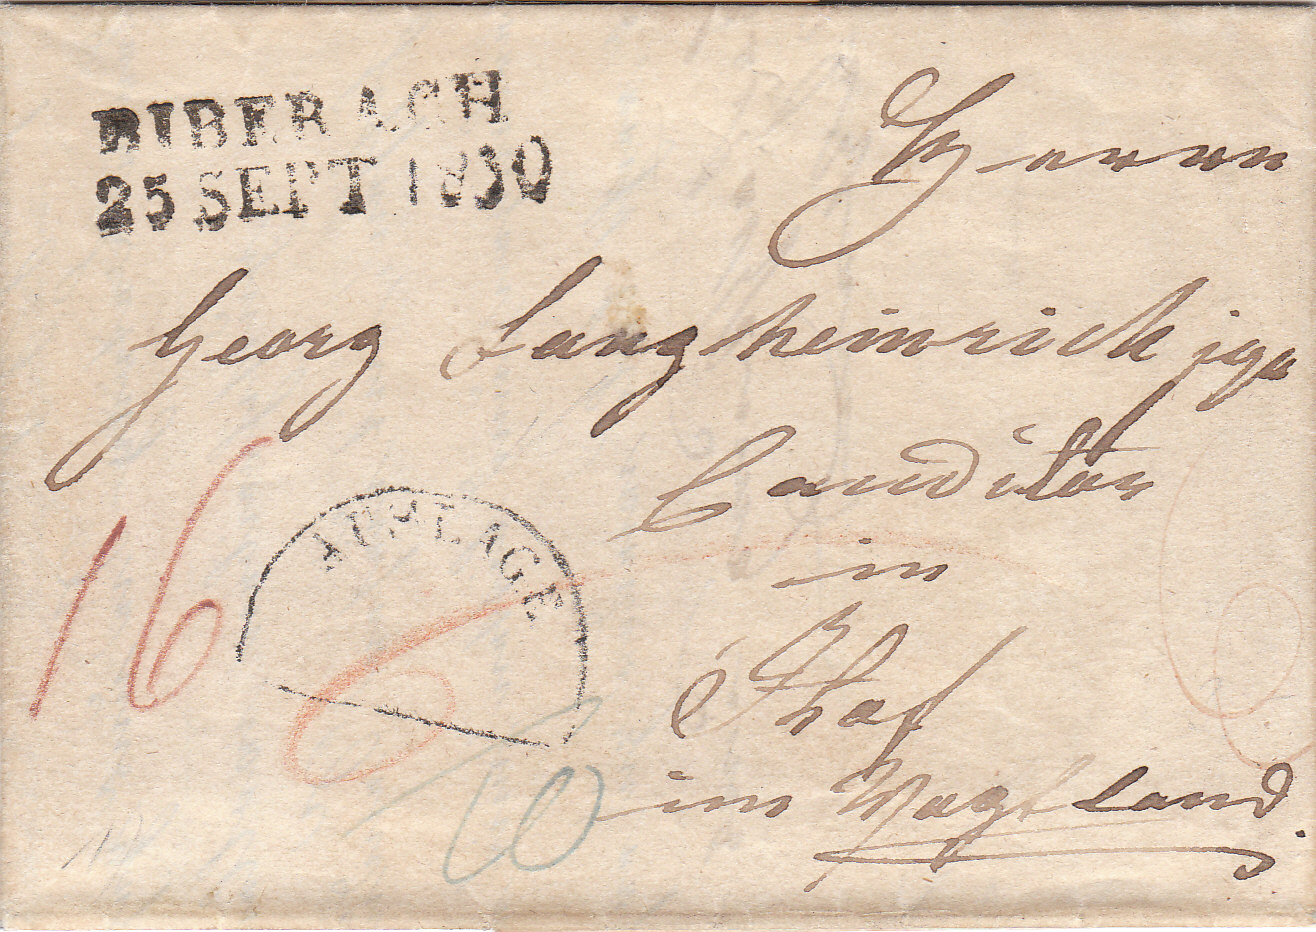 BIBERACH
25 SEPT 1830
Herrn
Georg Langheinrich jgr
Conditor
in
Hof
im Vogtland.
16
AUSLAGE
6
10